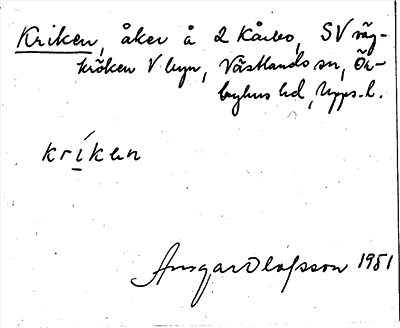 Kriken, åker å 2 Kårbo, SV väg-
kröken V byn, Västlands sn, Ör-
byhus hd, Upps. l.
kríken
Ansgar Olofsson 1951